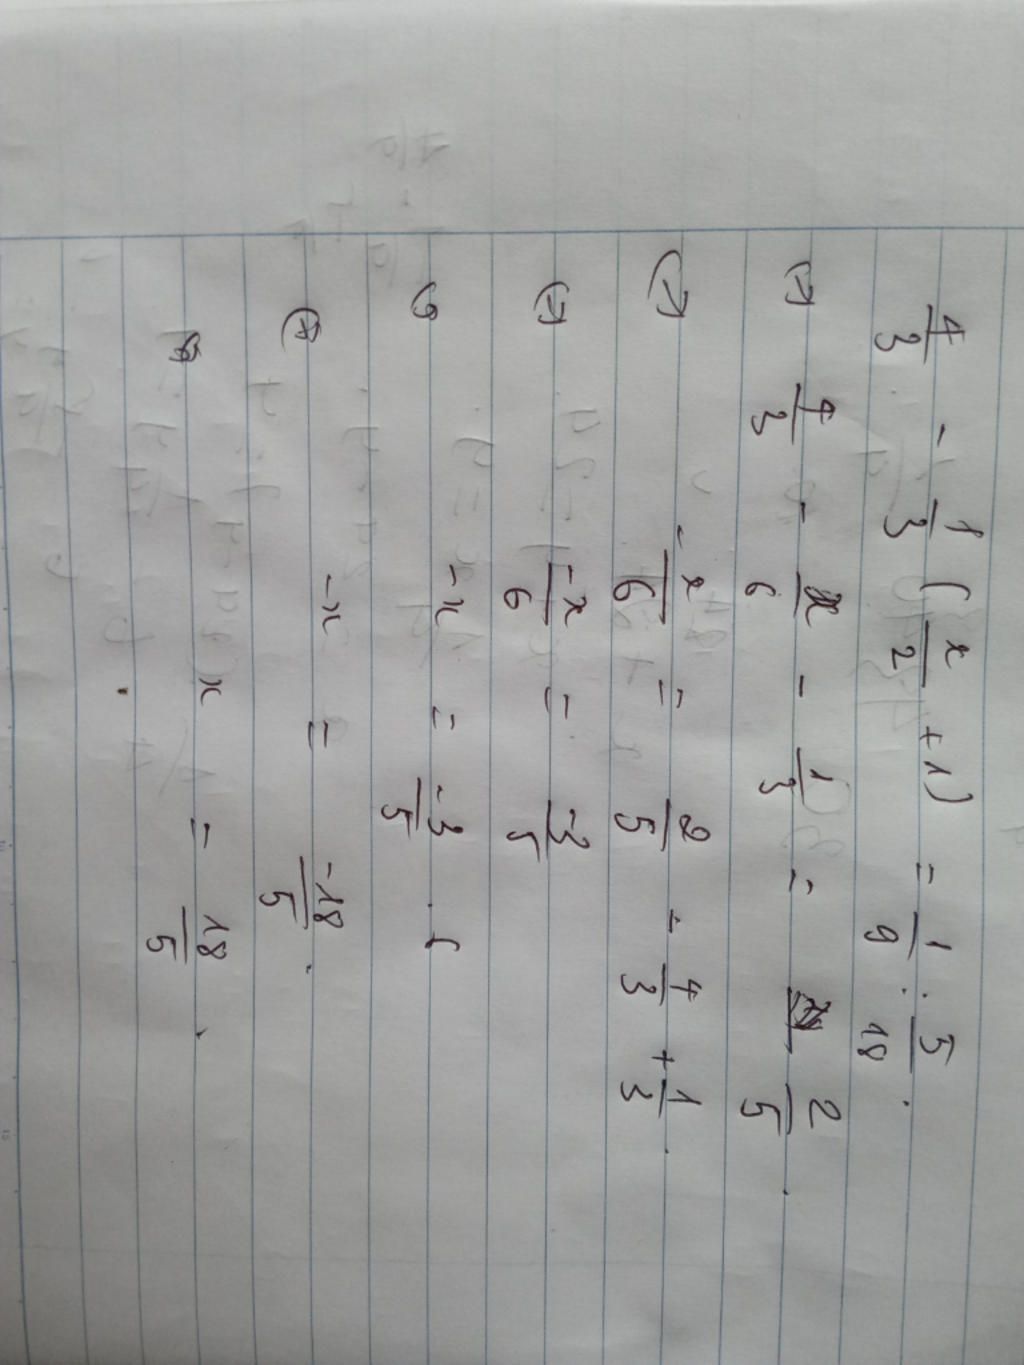 4/3 - 1/3 ( x/2 + 1) = 1/9 : 5/18 .
(→) 4/3 - x/6 - 1/3 = 2/5 .
(→) - x/6 = 2/5 - 4/3 + 1/3 .
(→) -x/6 = -3/5
-x = -3/5 .
(→) -x = -18/5 .
x = 18/5 .